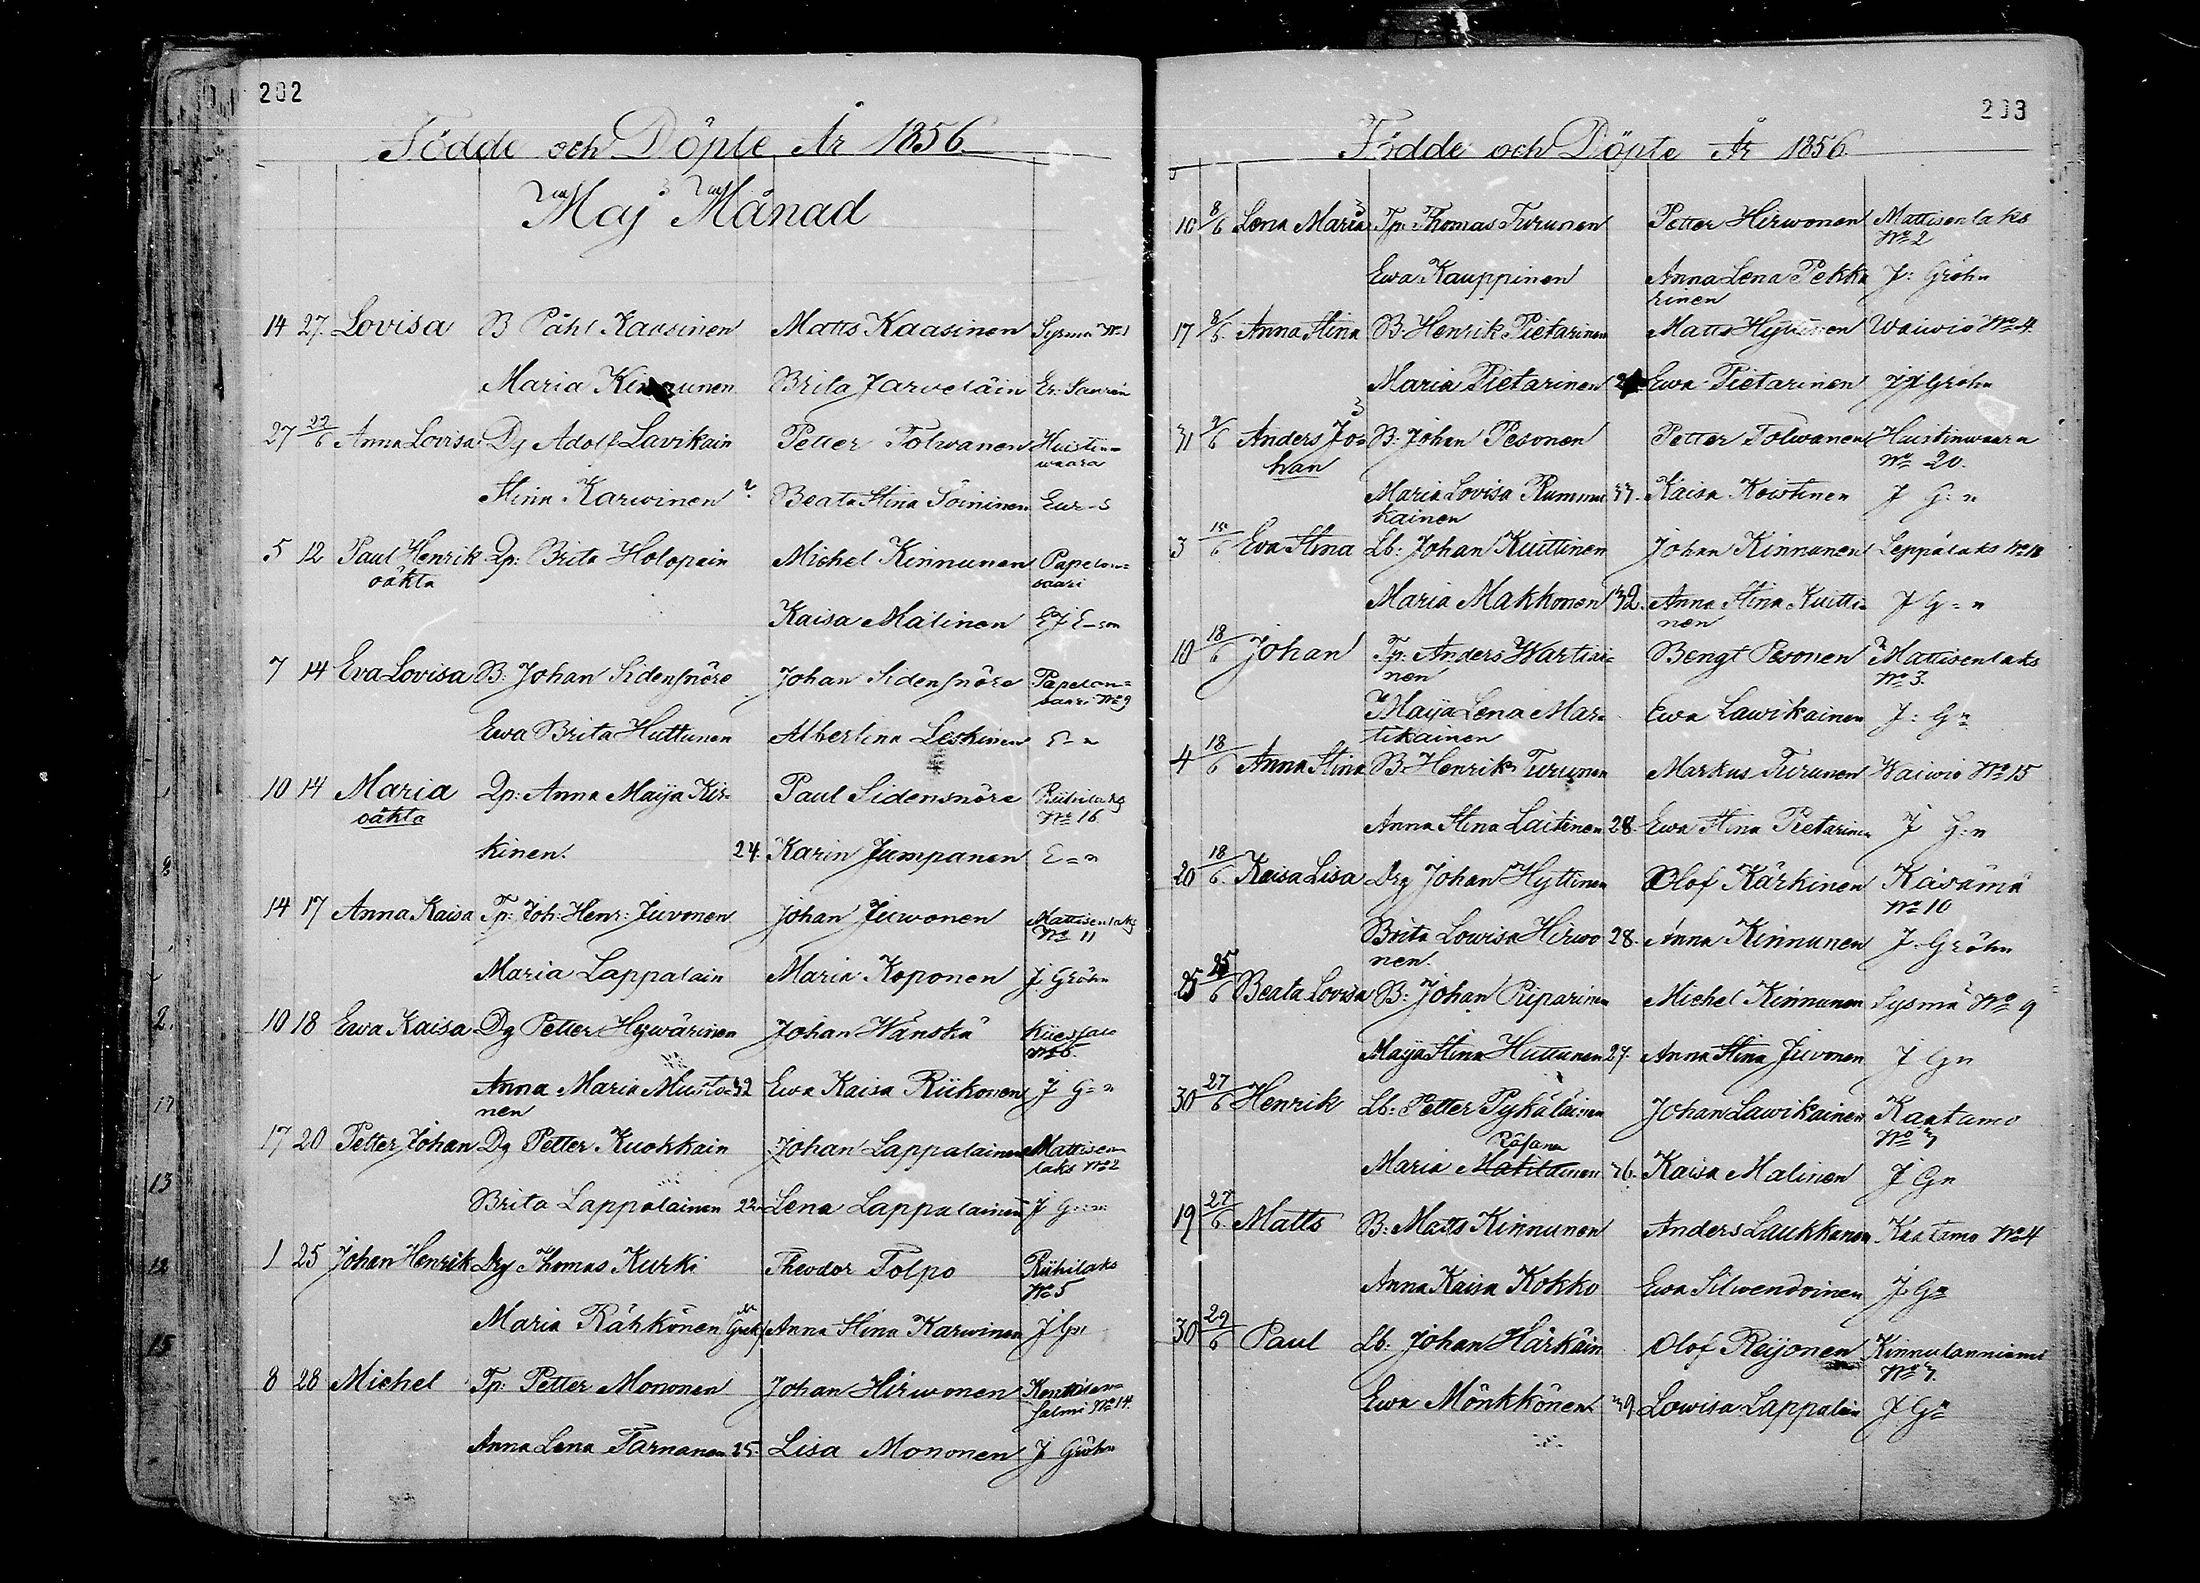 202
Födde och Döpte År 1856
Maj Månad
14 27. Lovisa B Påhl Kaasinen Matts Kaasinen Sysmä No 1
Maria Kinnunen Brita Jarveläin Er: Saurén
27 27/6 Anna Lovisa Dg Adolf Lavikain Petter Tolvanen Huistin=
waara
Stina Karvinen Beata Stina Soininen
5 12 Paul Henrik Qp: Brita Holopain Michel Kinnunen Papelon=
oäkta saari
Kaisa Malinen
7 14 Eva Lovisa B: Johan Sidensnöre Johan Sidensnöre Papelon=
saari No 9
Ewa Brita Huttunen Albertina Leskinen E=n
10 14 Maria Qp: Anna Maija Kir= Paul Sidensnöre Riihilaks
oäkta No 16
kinen. 24. Karin Jumpanen E=n
14 17 Anna Kaisa Tp: Joh: Henr: Juvonen Johan Juvonen Mattisenlaks
No 11
Maria Lappalain Maria Koponen J Gröhn
10 18 Ewa Kaisa Dg Petter Hyvärinen Johan Wänskä
Anna Maria Musto= 32 Ewa Kaisa Riikonen J G=n
nen
17 20 Petter Johan Dg Petter Kuokkain Johan Lappalainen Mattisen
laks No 2
Brita Lappalainen 22 Lena Lappalainen J G=n
1 25 Johan Henrik Drg Thomas Kurki Theodor Tolpo Riihilaks
No 5
Maria Rähkönen Anna Stina Karvinen J Gn
8 28 Michel Tp: Petter Mononen Johan Hirvonen
salmi No 14.
Anna Lena Tarnanen 25. Lisa Mononen J Gröhn
203
Födde och Döpte År 1856
10 8/6 Lena Maria Tp. Thomas Turunen Petter Hirvonen Mattisenlaks
No 2
Ewa Kauppinen Anna Lena Pekka J: Gröhn
rinen
17 8/6. Anna Stina B: Henrik Pietarinen Matts Hyttinen Waivio No 4
Maria Pietarinen Ewa Pietarinen J Gröhn
31 9/6 Anders Jo= B: Johan Pesonen Petter Tolwanen Huistinwaara
han No 20.
Maria Lovisa Rummu 33. Kaisa Kowtinen J G=n
kainen
3 15/6 Eva Stina Lb: Johan Kuittinen Johan Kinnunen Leppälaks No 18
Maria Makkonen 32. Anna Stina Kuitti= J G=n
nen
10 18/6 Johan Tp: Anders Wartiai= Bengt Pesonen Mattisenlaks
nen No 3.
Maija Lena Mar= Ewa Lawikainen J: Gn
tikainen
4 18/6 Anna Stina B: Henrik Turunen Markus Turunen Waiwio No 15
Anna Stina Laitinen 28. Ewa Stina Pietarinen J G=n
20 18/6. Kaisa Lisa Drg Johan Hyttinen Olof Kärkinen Käsämä
No 10
Brita Lowisa Hirwo 28. Anna Kinnunen J. Gröhn
nen.
25 25/6 Beata Lovisa B: Johan Piiparinen Michel Kinnunen Sysmä No 9
Maija Stina Huttunen 27. Anna Stina Juvonen J Gn
30 27/6 Henrik Lb: Petter Pykäläinen Johan Lawikainen Kaatamo
No 7
Räsänen
Maria Matilainen 36. Kaisa Malinen J Gn
19 27/6. Matts B: Matts Kinnunen Anders Laukkanen Kaatamo No 4
Anna Kaisa Kokko Ewa Silwendoinen J. Gn
30 29/6 Paul Lb: Johan Härkäin Olof Reijonen Kinnulanniemi
No 7.
Ewa Mönkkönen 39. Lowisa Lappalain J Gn